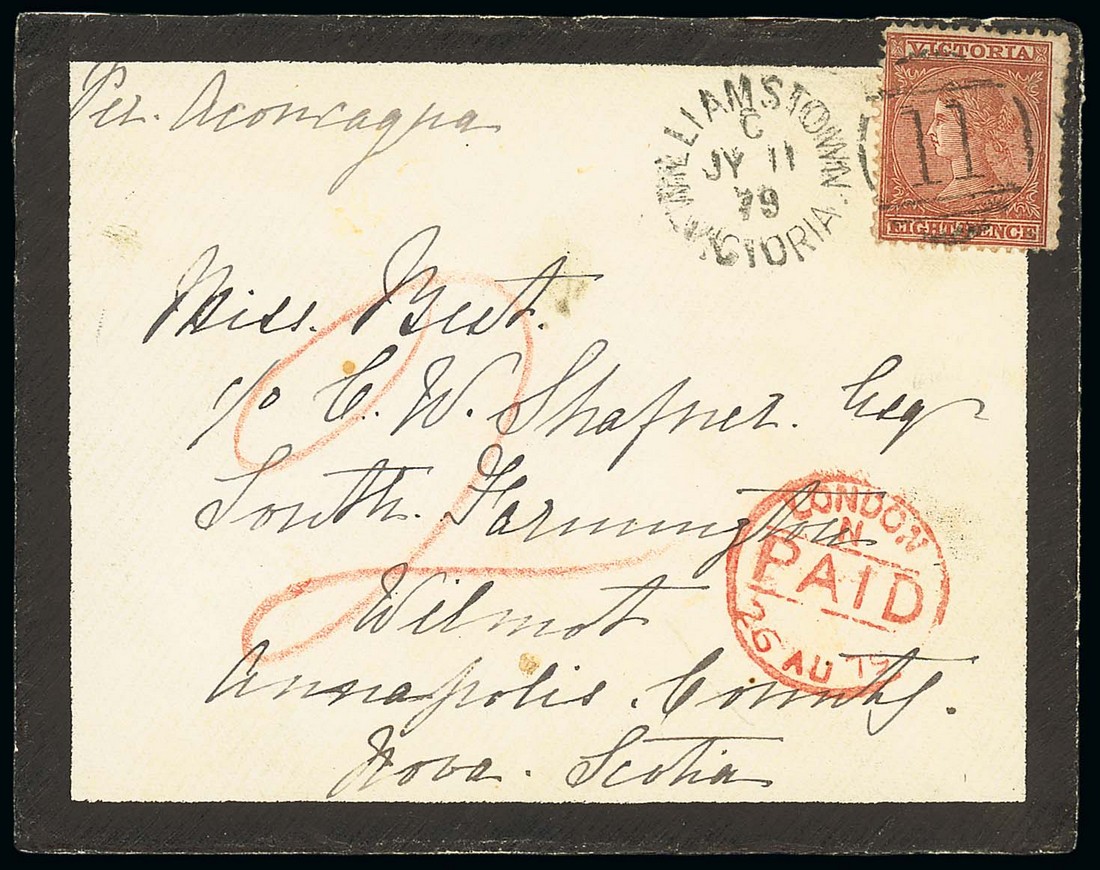 Per. Aconcagua
WILLIAMSTOWN
C
JY 11
79
VICTORIA
VICTORIA
11
EIGHT PENCE
Miss. Best.
c/o C. W. Shafner. Esq
South. Farmington
Wilmot
Annapolis. County.
Nova. Scotia
2
LONDON
N
PAID
26 AU 79